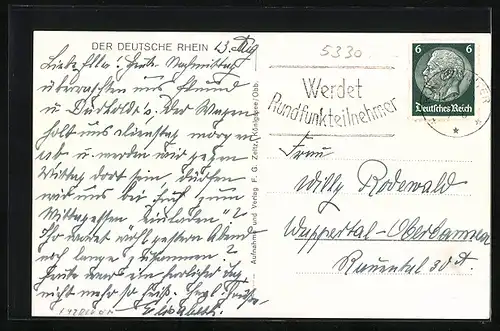 DER DEUTSCHE RHEIN 23. Aug
Liebe Ella! Heute Nachmittag
überraschten uns Freund
u Der Wagen
holt uns Dienstag morgen
ab u werden wir gegen
Mittag dort sein dürfen
wir uns bei zum
Mittagessen einladen"?
Ihr wart wohl gestern Abend
noch lange zusammen?
Heute war's ein herrlicher Tag
nicht mehr so heiß. Herzl. Grüße
Elisabeth.
Aufnahme und Verlag F. G. Zeitz, Königssee/Obb.
5330
Werdet
Rundfunkteilnehmer
6 6
Deutsches Reich
Frau
Willy Rodewald
Wuppertal-Oberbarmen
Rauental 30